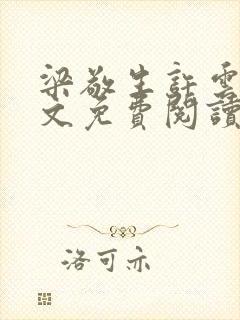 梁敬生許雲
文免費閱讀
洛可亦